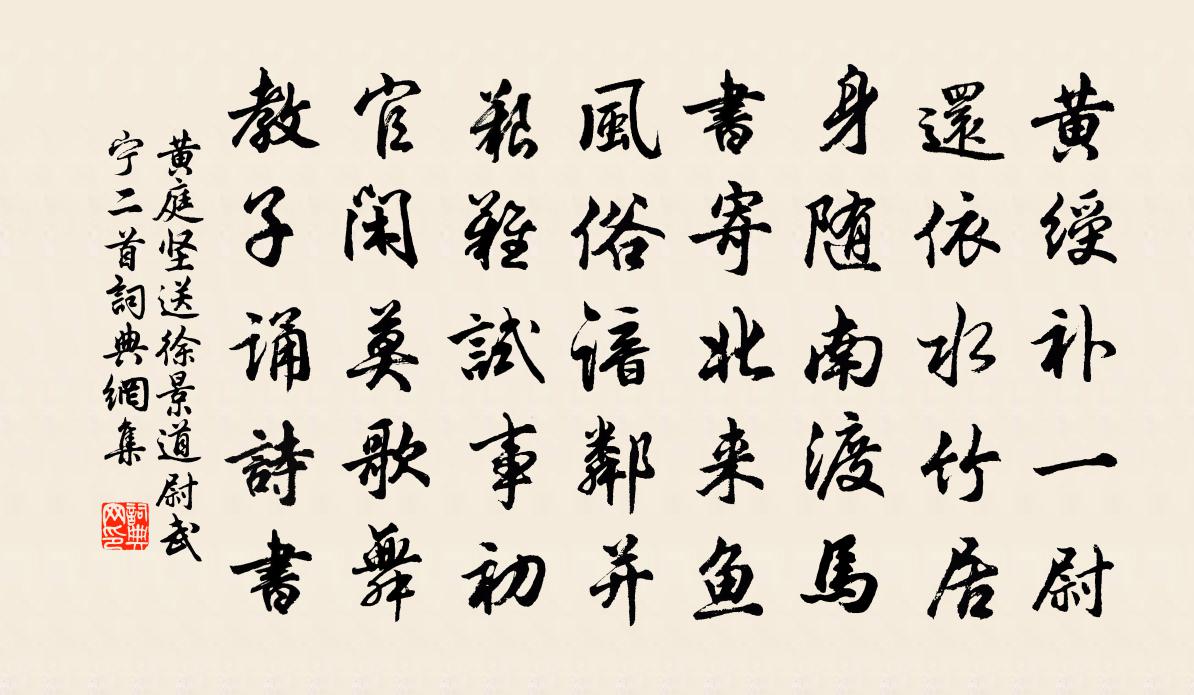 黄綬补一尉
還依水竹居
身随南渡馬
書寄北来魚
風俗諳鄰并
艱難試事初
官閑莫歌舞
教子诵詩書
黄庭坚送徐景道尉武
宁二首詞典網集
詞典
网印